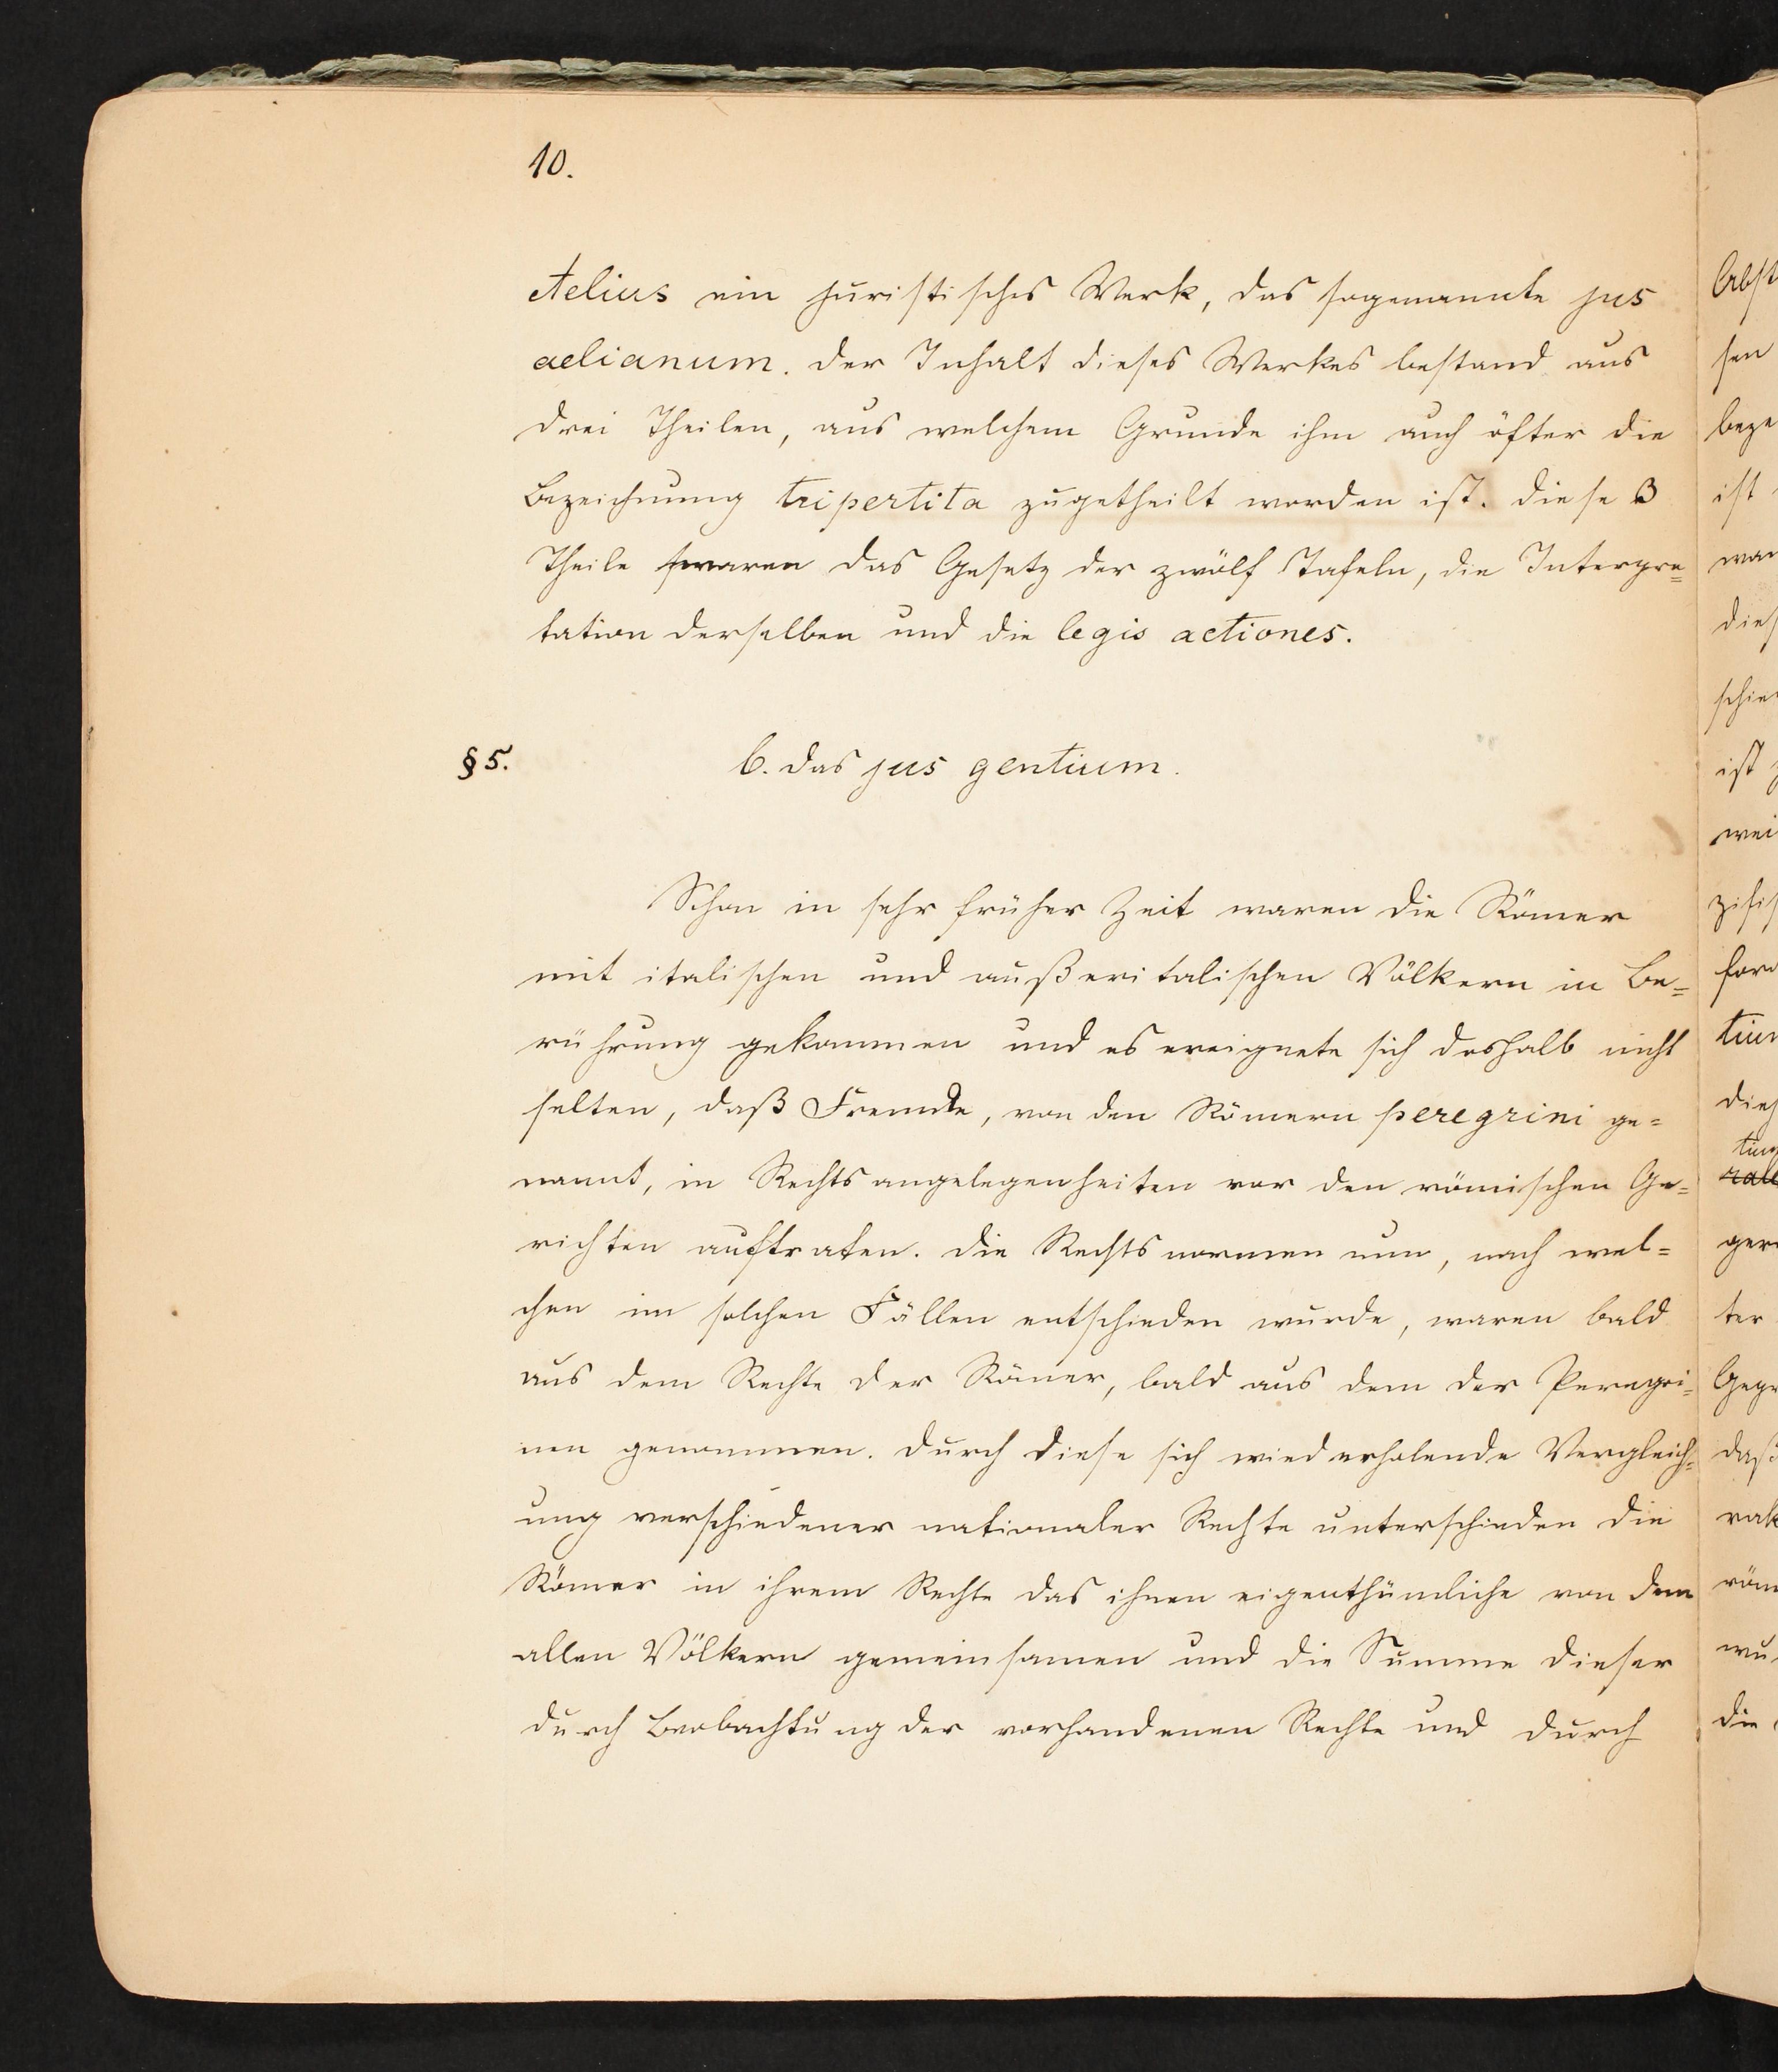 10.
Aelius ein juristisches Werk, das sogenannte jus
aelianum. Der Inhalt dieses Werkes bestand aus
drei Theilen, aus welchem Grunde ihm auch öfter die
Bezeichnung tripertita zugetheilt worden ist. Diese 3
Theile waren das Gesetz der zwölf Tafeln, die Interpre=
tation derselben und die legis actiones.
§ 5. b. Das jus gentium.
Schon in sehr früher Zeit waren die Römer
mit italischen und außeritalischen Völkern in Be=
rührung gekommen und es ereignete sich deshalb nicht
selten, daß Fremde, von den Römern peregrini ge=
nannt, in Rechtsangelegenheiten vor den römischen Ge=
richten auftraten. Die Rechtsnormen nun, nach wel=
chen im solchen Fällen entschieden wurde, waren bald
aus dem Rechte der Römer, bald aus dem der Peregri=
nen genommen. Durch diese sich wiederholende Vergleich=
ung verschiedener nationaler Rechte unterschieden die
Römer in ihrem Rechte das ihnen eigenthümliche von dem
allen Völkern gemeinsamen und die Summe dieser
durch Beobachtung der vorhandenen Rechte und durch